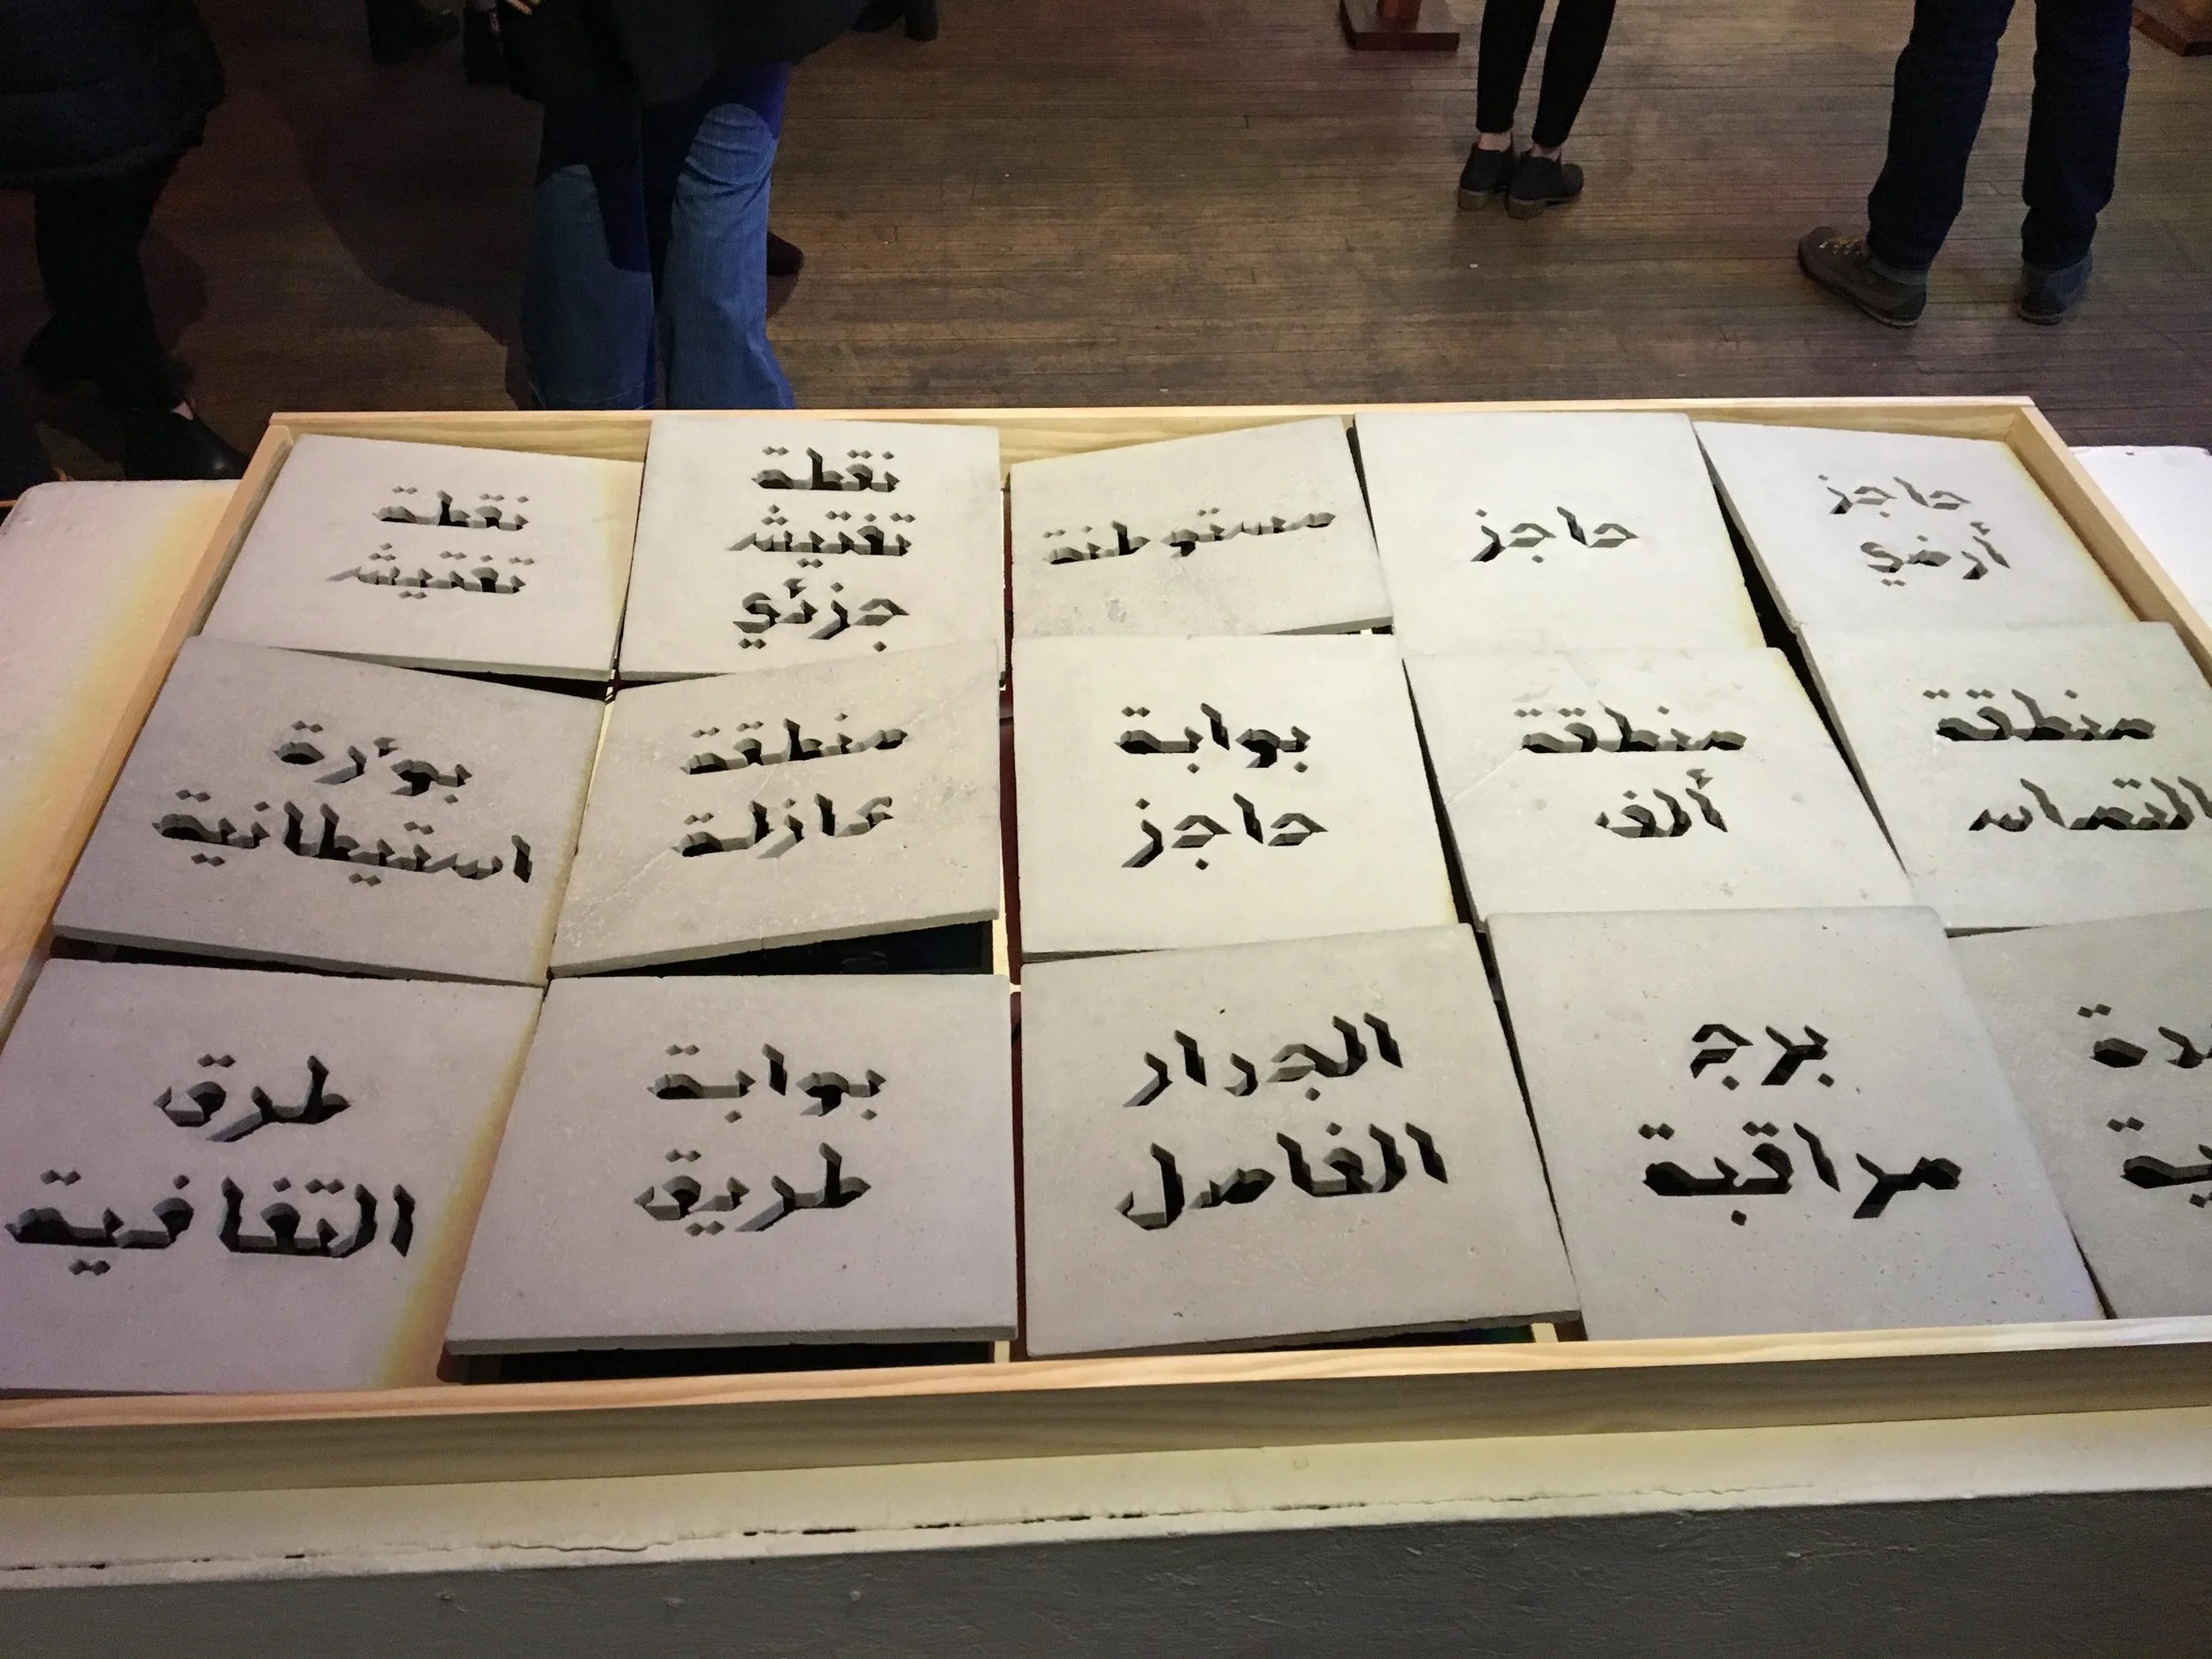 حاجز
أرضي
حاجز
مستوطنة
نقطة
تفتيش
جزئي
نقطة
تفتيش
منطقة
التماس
منطقة
ألف
بوابة
حاجز
منطقة
عازلة
بؤرة
استيطانية
برج
مراقبة
الجدار
الفاصل
بوابة
طريق
طرق
التفافية